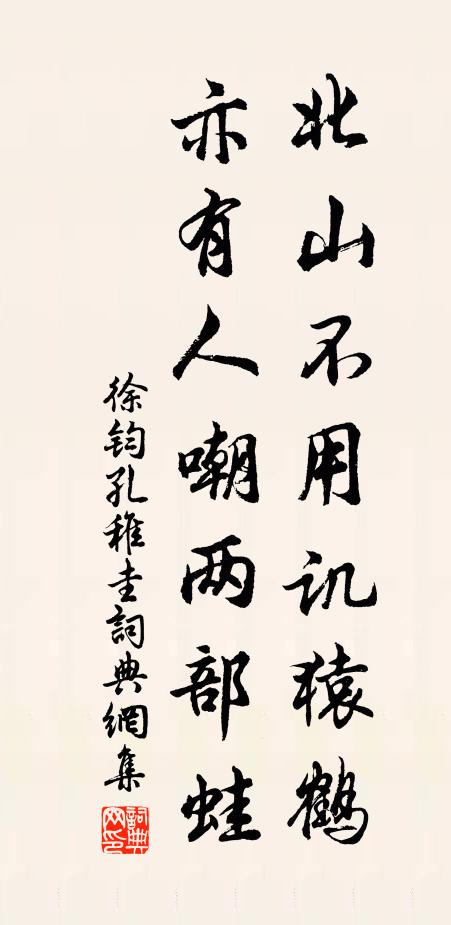 北山不用讥猿鹤
亦有人嘲两部蛙
徐钧孔稚圭詞典網集
詞典網印